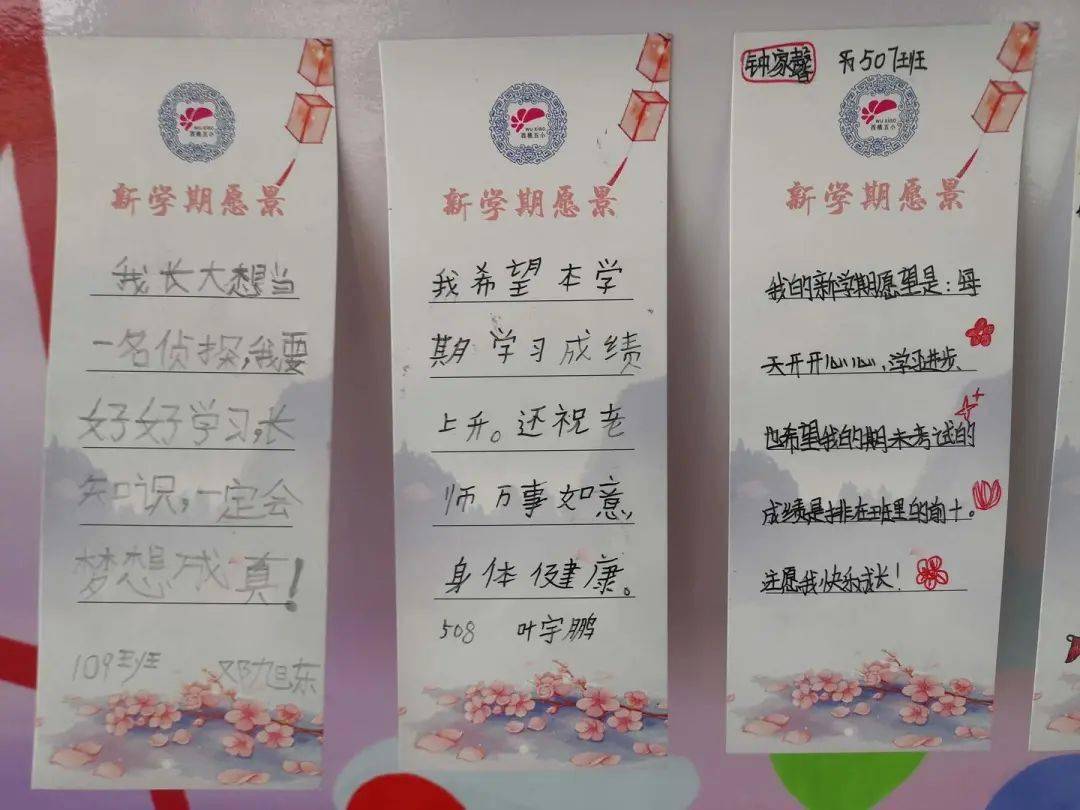 WU XIAO
西樵五小
新学期愿景
我长大想当
一名侦探,我要
好好学习,长
知识,一定会
梦想成真!
109班 邓旭东
WU XIAO
西樵五小
新学期愿景
我希望本学
期学习成绩
上升。还祝老
师万事如意,
身体健康。
508 叶宇鹏
钟家馨 507班
WU XIAO
西樵五小
新学期愿景
我的新学期愿望是:每
天开开心心,学习进步、
也希望我的期末考试的
成绩是排在班里的前十。
注愿我快乐成长!